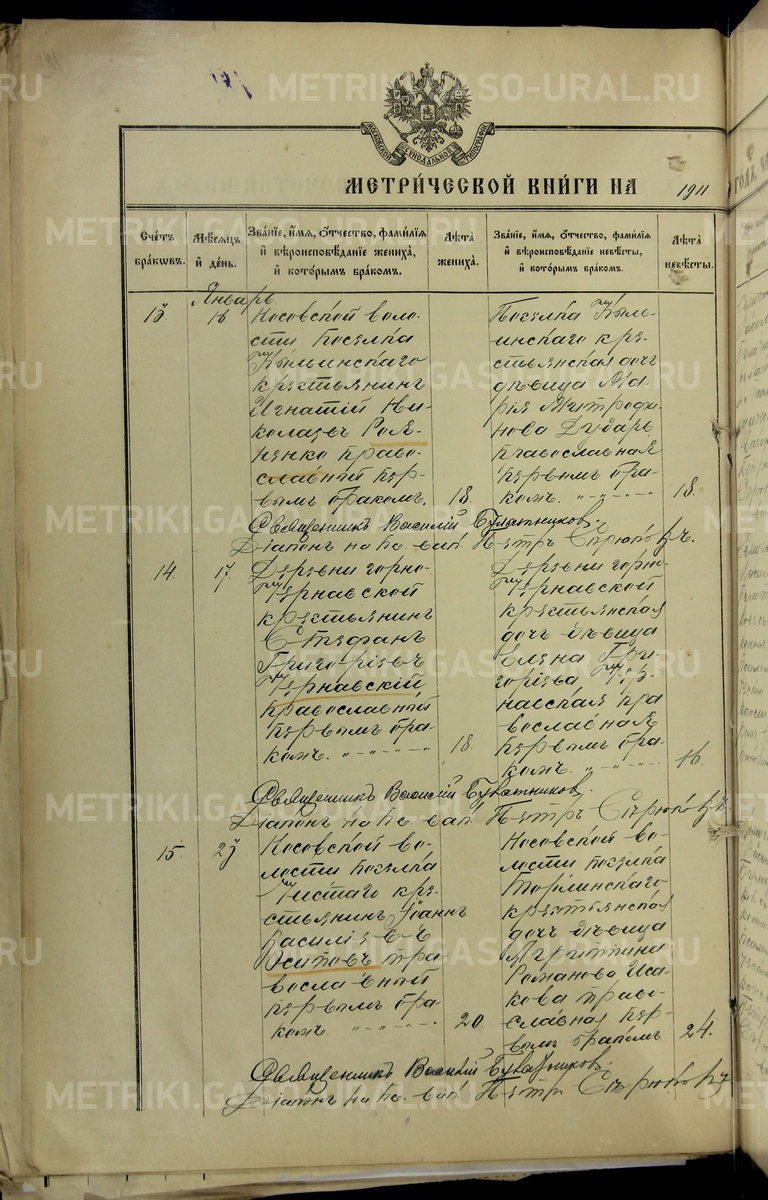 МОСКОВСКОЙ СУНОДАЛЬНОЙ ТИПОГРАФІИ
МЕТРИ́ЧЕСКОЙ КНИ́ГИ НА 1911.
Сче́тъ бра́кѡвъ.
Мѣ́сѧцъ и҆ де́нь.
Зва́нїе, и҆́мѧ, ѻ҆́тчество, фами́лїѧ
и҆ вѣроисповѣ́данїе жениха̀,
и҆ кото́рымъ бра́комъ.
Лѣ́та жениха̀.
Зва́нїе, и҆́мѧ, ѻ҆́тчество, фами́лїѧ
и҆ вѣроисповѣ́данїе невѣ́сты,
и҆ кото́рымъ бра́комъ.
Лѣ́та невѣ́сты.
Январь
13. 16.
Носовской воло-
сти поселка
крестьянинъ
Игнатій Ни-
колаевъ
право-
славный пер-
вымъ бракомъ. 18.
Поселка
инскаго кре-
стьянская дочь
дѣвица Ма-
рія Митрофа-
нова Дударь
православная
первымъ бра-
комъ. 18.
Священникъ Василій Булатников.
Діаконъ на пс. вак. Петръ
14. 17.
Деревни горно-
Тернавской
крестьянинъ
Стефанъ
Григоріевъ
Тернавскій
православный
первымъ бра-
комъ. 18.
Деревни горно-
Тернавской
крестьянская
дочь дѣвица
Елена Гри-
горіева Тер-
навская пра
вославная
первымъ бра-
комъ. 16.
Священникъ Василій Булатников.
Діаконъ на пс. вак. Петръ
15. 23
Носовской во-
лости поселка
Чистаго кре-
стьянинъ Іоаннъ
Василіевъ
Осиповъ пра-
вославный
первымъ бра-
комъ. 20
Носовской во-
лости поселка
крестьянская
дочь дѣвица
Агриппина
Романова Иса-
кова право-
славная пер-
вымъ бракомъ 24.
Священникъ Василій Булатников.
Діаконъ на пс. вак. Петръ
METRIKI.GASO-URAL.RU